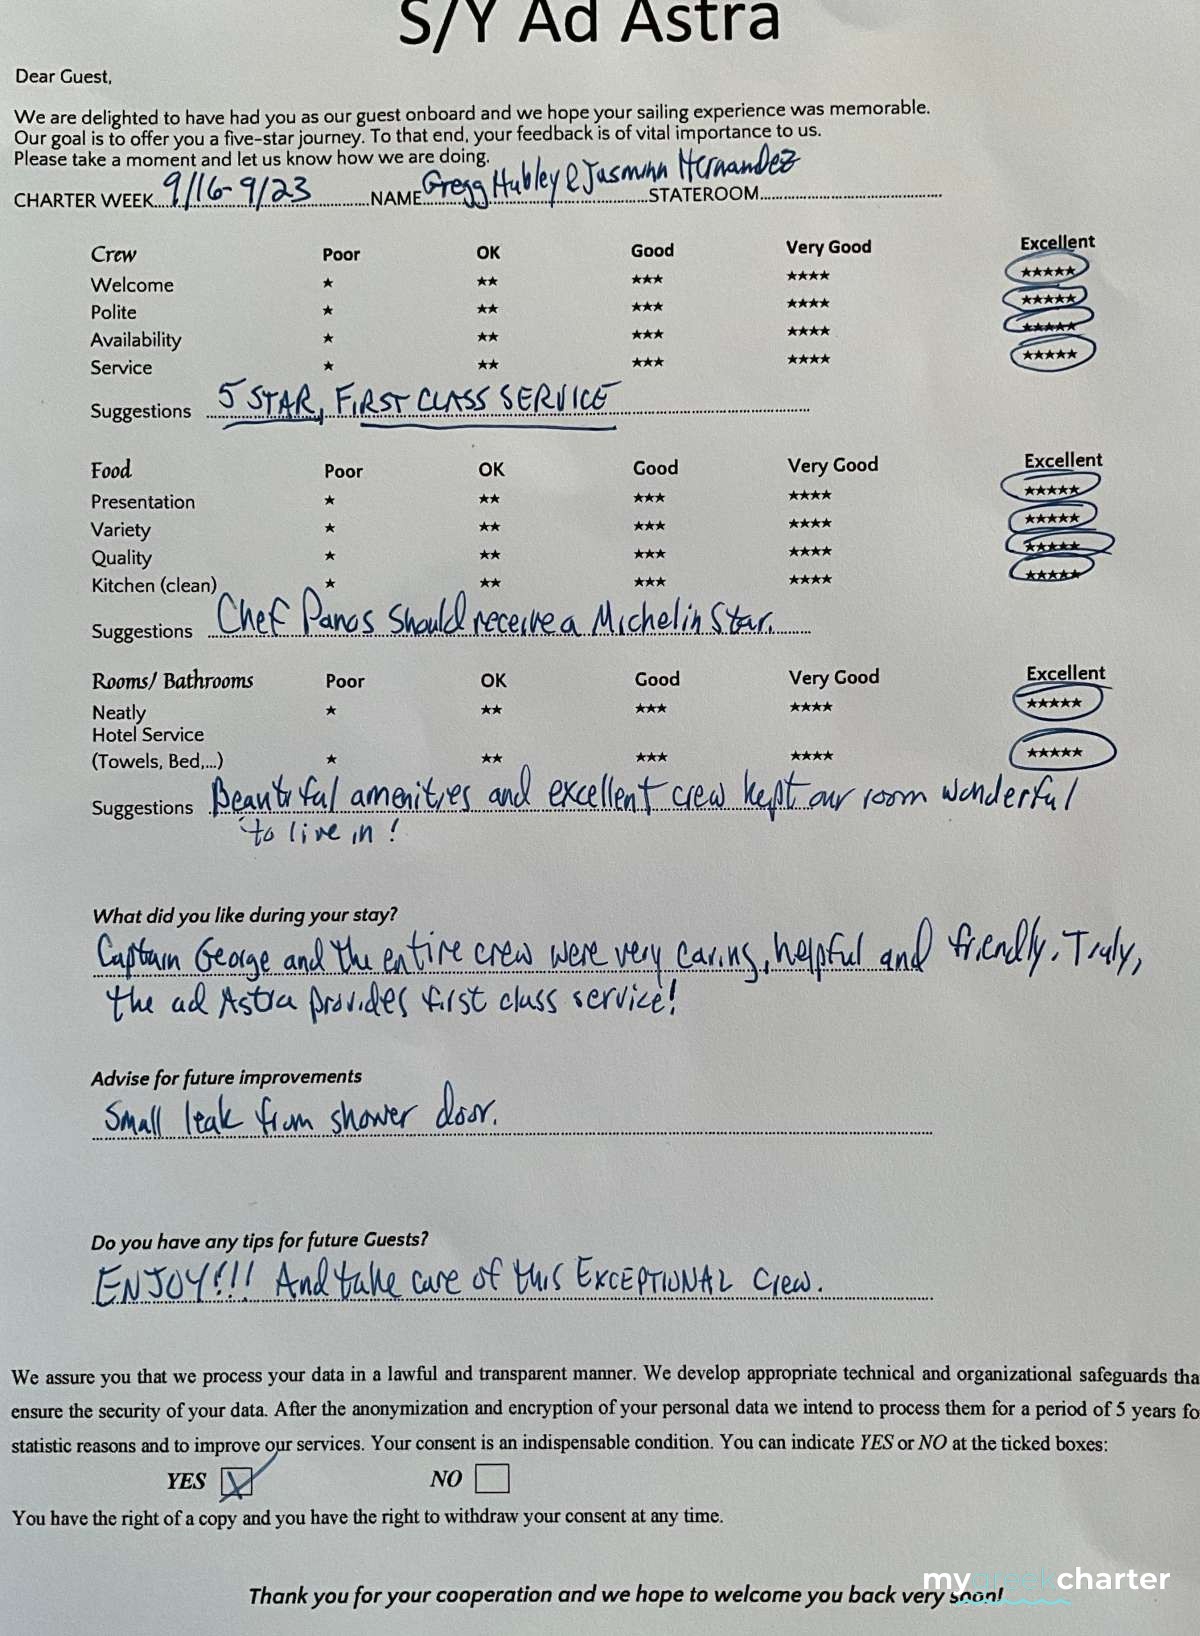 S/Y Ad Astra
Dear Guest,
We are delighted to have had you as our guest onboard and we hope your sailing experience was memorable.
Our goal is to offer you a five-star journey. To that end, your feedback is of vital importance to us.
Please take a moment and let us know how we are doing.
CHARTER WEEK 9/16-9/23 NAME Gregg Hubley & Jasminn Hernandez STATEROOM
Crew Poor OK Good Very Good Excellent
Welcome ★ ★★ ★★★ ★★★★ ★★★★★
Polite ★ ★★ ★★★ ★★★★ ★★★★★
Availability ★ ★★ ★★★ ★★★★ ★★★★★
Service ★ ★★ ★★★ ★★★★ ★★★★★
Suggestions 5 STAR, FIRST CLASS SERVICE
Food Poor OK Good Very Good Excellent
Presentation ★ ★★ ★★★ ★★★★ ★★★★★
Variety ★ ★★ ★★★ ★★★★ ★★★★★
Quality ★ ★★ ★★★ ★★★★ ★★★★★
Kitchen (clean) ★ ★★ ★★★ ★★★★ ★★★★★
Suggestions Chef Panos should receive a Michelin Star.
Rooms/ Bathrooms Poor OK Good Very Good Excellent
Neatly ★ ★★ ★★★ ★★★★ ★★★★★
Hotel Service
(Towels, Bed,...) ★ ★★ ★★★ ★★★★ ★★★★★
Suggestions Beautiful amenities and excellent crew kept our room wonderful
to live in!
What did you like during your stay?
Captain George and the entire crew were very caring, helpful and friendly. Truly,
the ad Astra provides first class service!
Advise for future improvements
Small leak from shower door.
Do you have any tips for future Guests?
ENJOY!!! And take care of this EXCEPTIONAL Crew.
We assure you that we process your data in a lawful and transparent manner. We develop appropriate technical and organizational safeguards tha
ensure the security of your data. After the anonymization and encryption of your personal data we intend to process them for a period of 5 years fo
statistic reasons and to improve our services. Your consent is an indispensable condition. You can indicate YES or NO at the ticked boxes:
YES X NO
You have the right of a copy and you have the right to withdraw your consent at any time.
Thank you for your cooperation and we hope to welcome you back very soon!
mygreekcharter